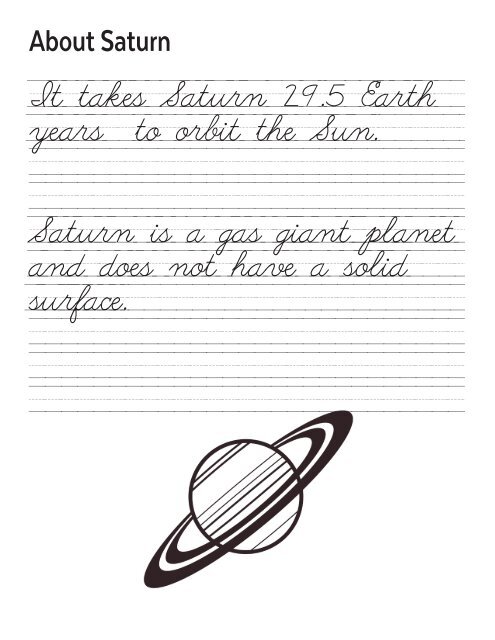 About Saturn
It takes Saturn 29.5 Earth
years to orbit the Sun.
Saturn is a gas giant planet
and does not have a solid
surface.